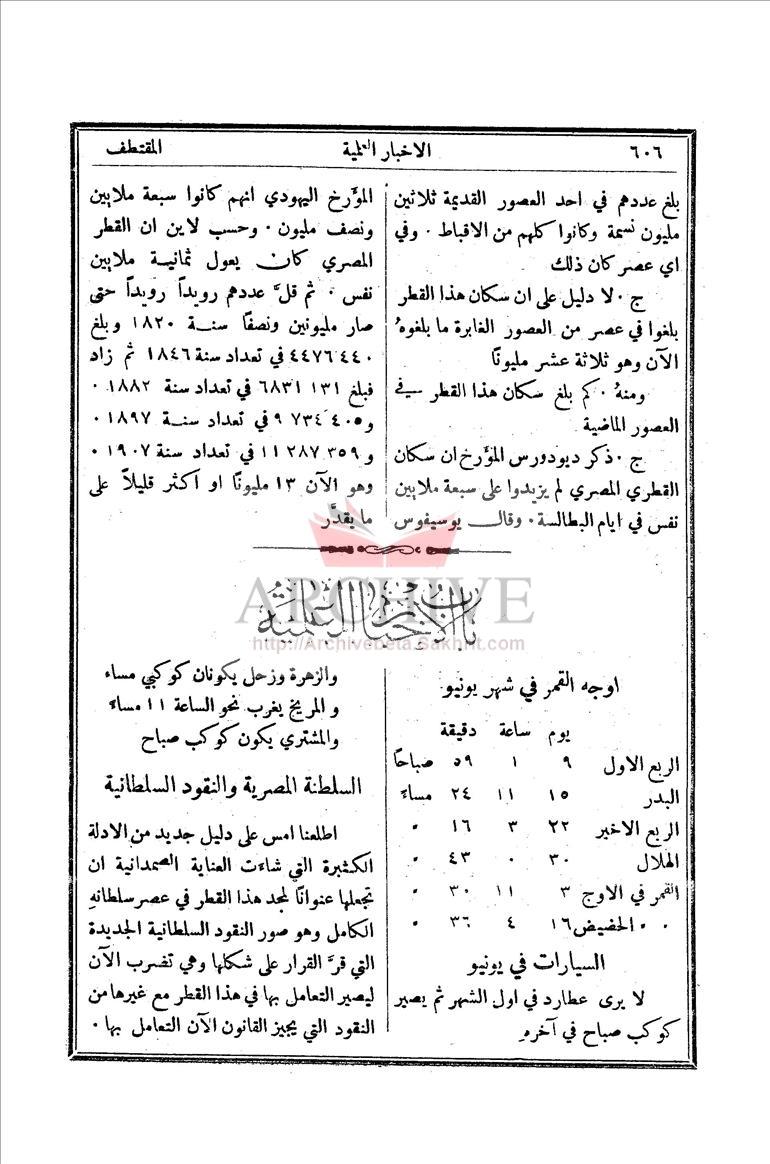 ٦٠٦
الاخبار العلمية
المقتطف
بلغ عددهم في احد العصور القديمة ثلاثين
مليون نسمة وكانوا كلهم من الاقباط ٠ وفي
اي عصر كان ذلك
ج ٠ لا دليل على ان سكان هذا القطر
بلغوا في عصر من العصور الغابرة ما بلغوهُ
الآن وهو ثلاثة عشر مليونًا
ومنهُ ٠ كم بلغ سكان هذا القطر في
العصور الماضية
ج ٠ ذكر ديودورس المؤرخ ان سكان
القطري المصري لم يزيدوا على سبعة ملايين
نفس في ايام البطالسة ٠ وقال يوسيفوس
المؤرخ اليهودي انهم كانوا سبعة ملايين
ونصف مليون ٠ وحسب لاين ان القطر
المصري كان يعول ثمانية ملايين
نفس ٠ ثم قلَّ عددهم رويداً رويداً حتى
صار مليونين ونصفًا سنة ١٨٢٠ وبلغ
٤٤٧٦٤٤٠ في تعداد سنة ١٨٤٦ ثم زاد
فبلغ ٦٨٣١١٣١ في تعداد سنة ١٨٨٢ ٠
و٩٧٣٤٤٠٥ في تعداد سنة ١٨٩٧ ٠
و١١٢٨٧٣٥٩ في تعداد سنة ١٩٠٧ ٠
وهو الآن ١٣ مليونًا او اكثر قليلاً على
ما يقدَّر
ARCHIVE
http://Archivebeta.Sakhrit.com
باب الاخبار العلمية
اوجه القمر في شهر يونيو
يوم ساعة دقيقة
الربع الاول ٩ ١ ٥٩ صباحًا
البدر ١٥ ١١ ٢٤ مساءً
الربع الاخير ٢٢ ٣ ١٦ "
الهلال ٣٠ ٠ ٤٣ "
القمر في الاوج ٣ ١١ ٣٠ "
" " الحضيض ١٦ ٤ ٣٦ "
السيارات في يونيو
لا يرى عطارد في اول الشهر ثم يصير
كوكب صباح في آخرهِ
والزهرة وزحل يكونان كوكبي مساء
والمريخ يغرب نحو الساعة ١١ مساءً
والمشتري يكون كوكب صباح
السلطنة المصرية والنقود السلطانية
اطلعنا امس على دليل جديد من الادلة
الكثيرة التي شاءت العناية الصمدانية ان
تجعلها عنوانًا لمجد هذا القطر في عصر سلطانهِ
الكامل وهو صور النقود السلطانية الجديدة
التي قرَّ القرار على شكلها وهي تضرب الآن
ليصير التعامل بها في هذا القطر مع غيرها من
النقود التي يجيز القانون الآن التعامل بها ٠